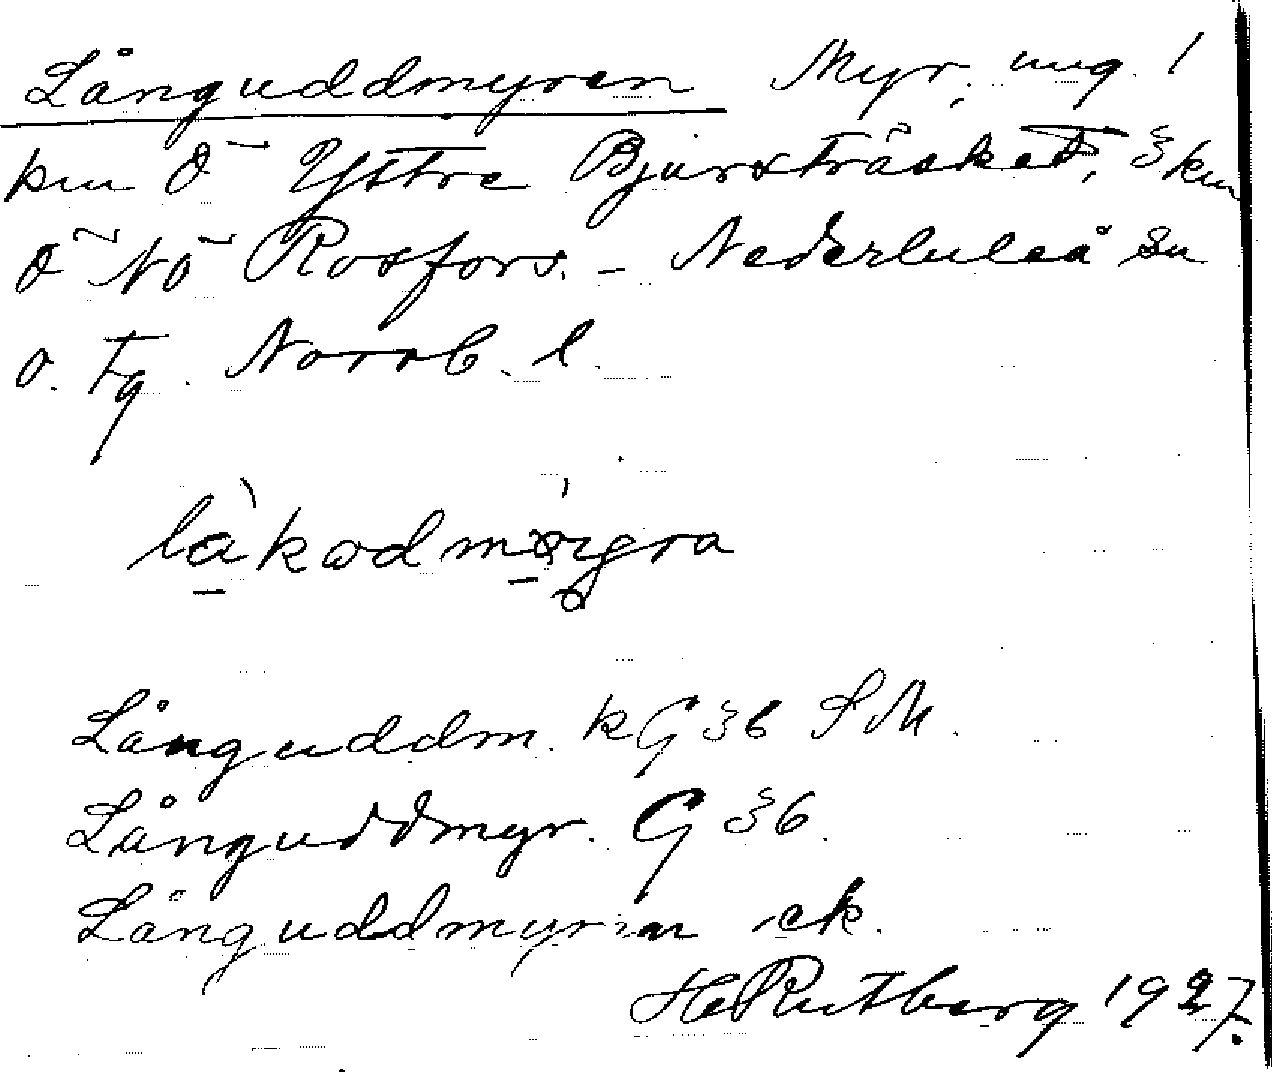 Långuddmyren Myr, ung. 1
km Ö Yttre Bjursträsket, 3 km
Ö NÖ Rosfors. – Nederluleå sn
o. tg. Norrb. l.
Långuddm. kG 36 SM.
Långuddmyr. G 36.
Långuddmyran ek.
He Rutberg 1927.